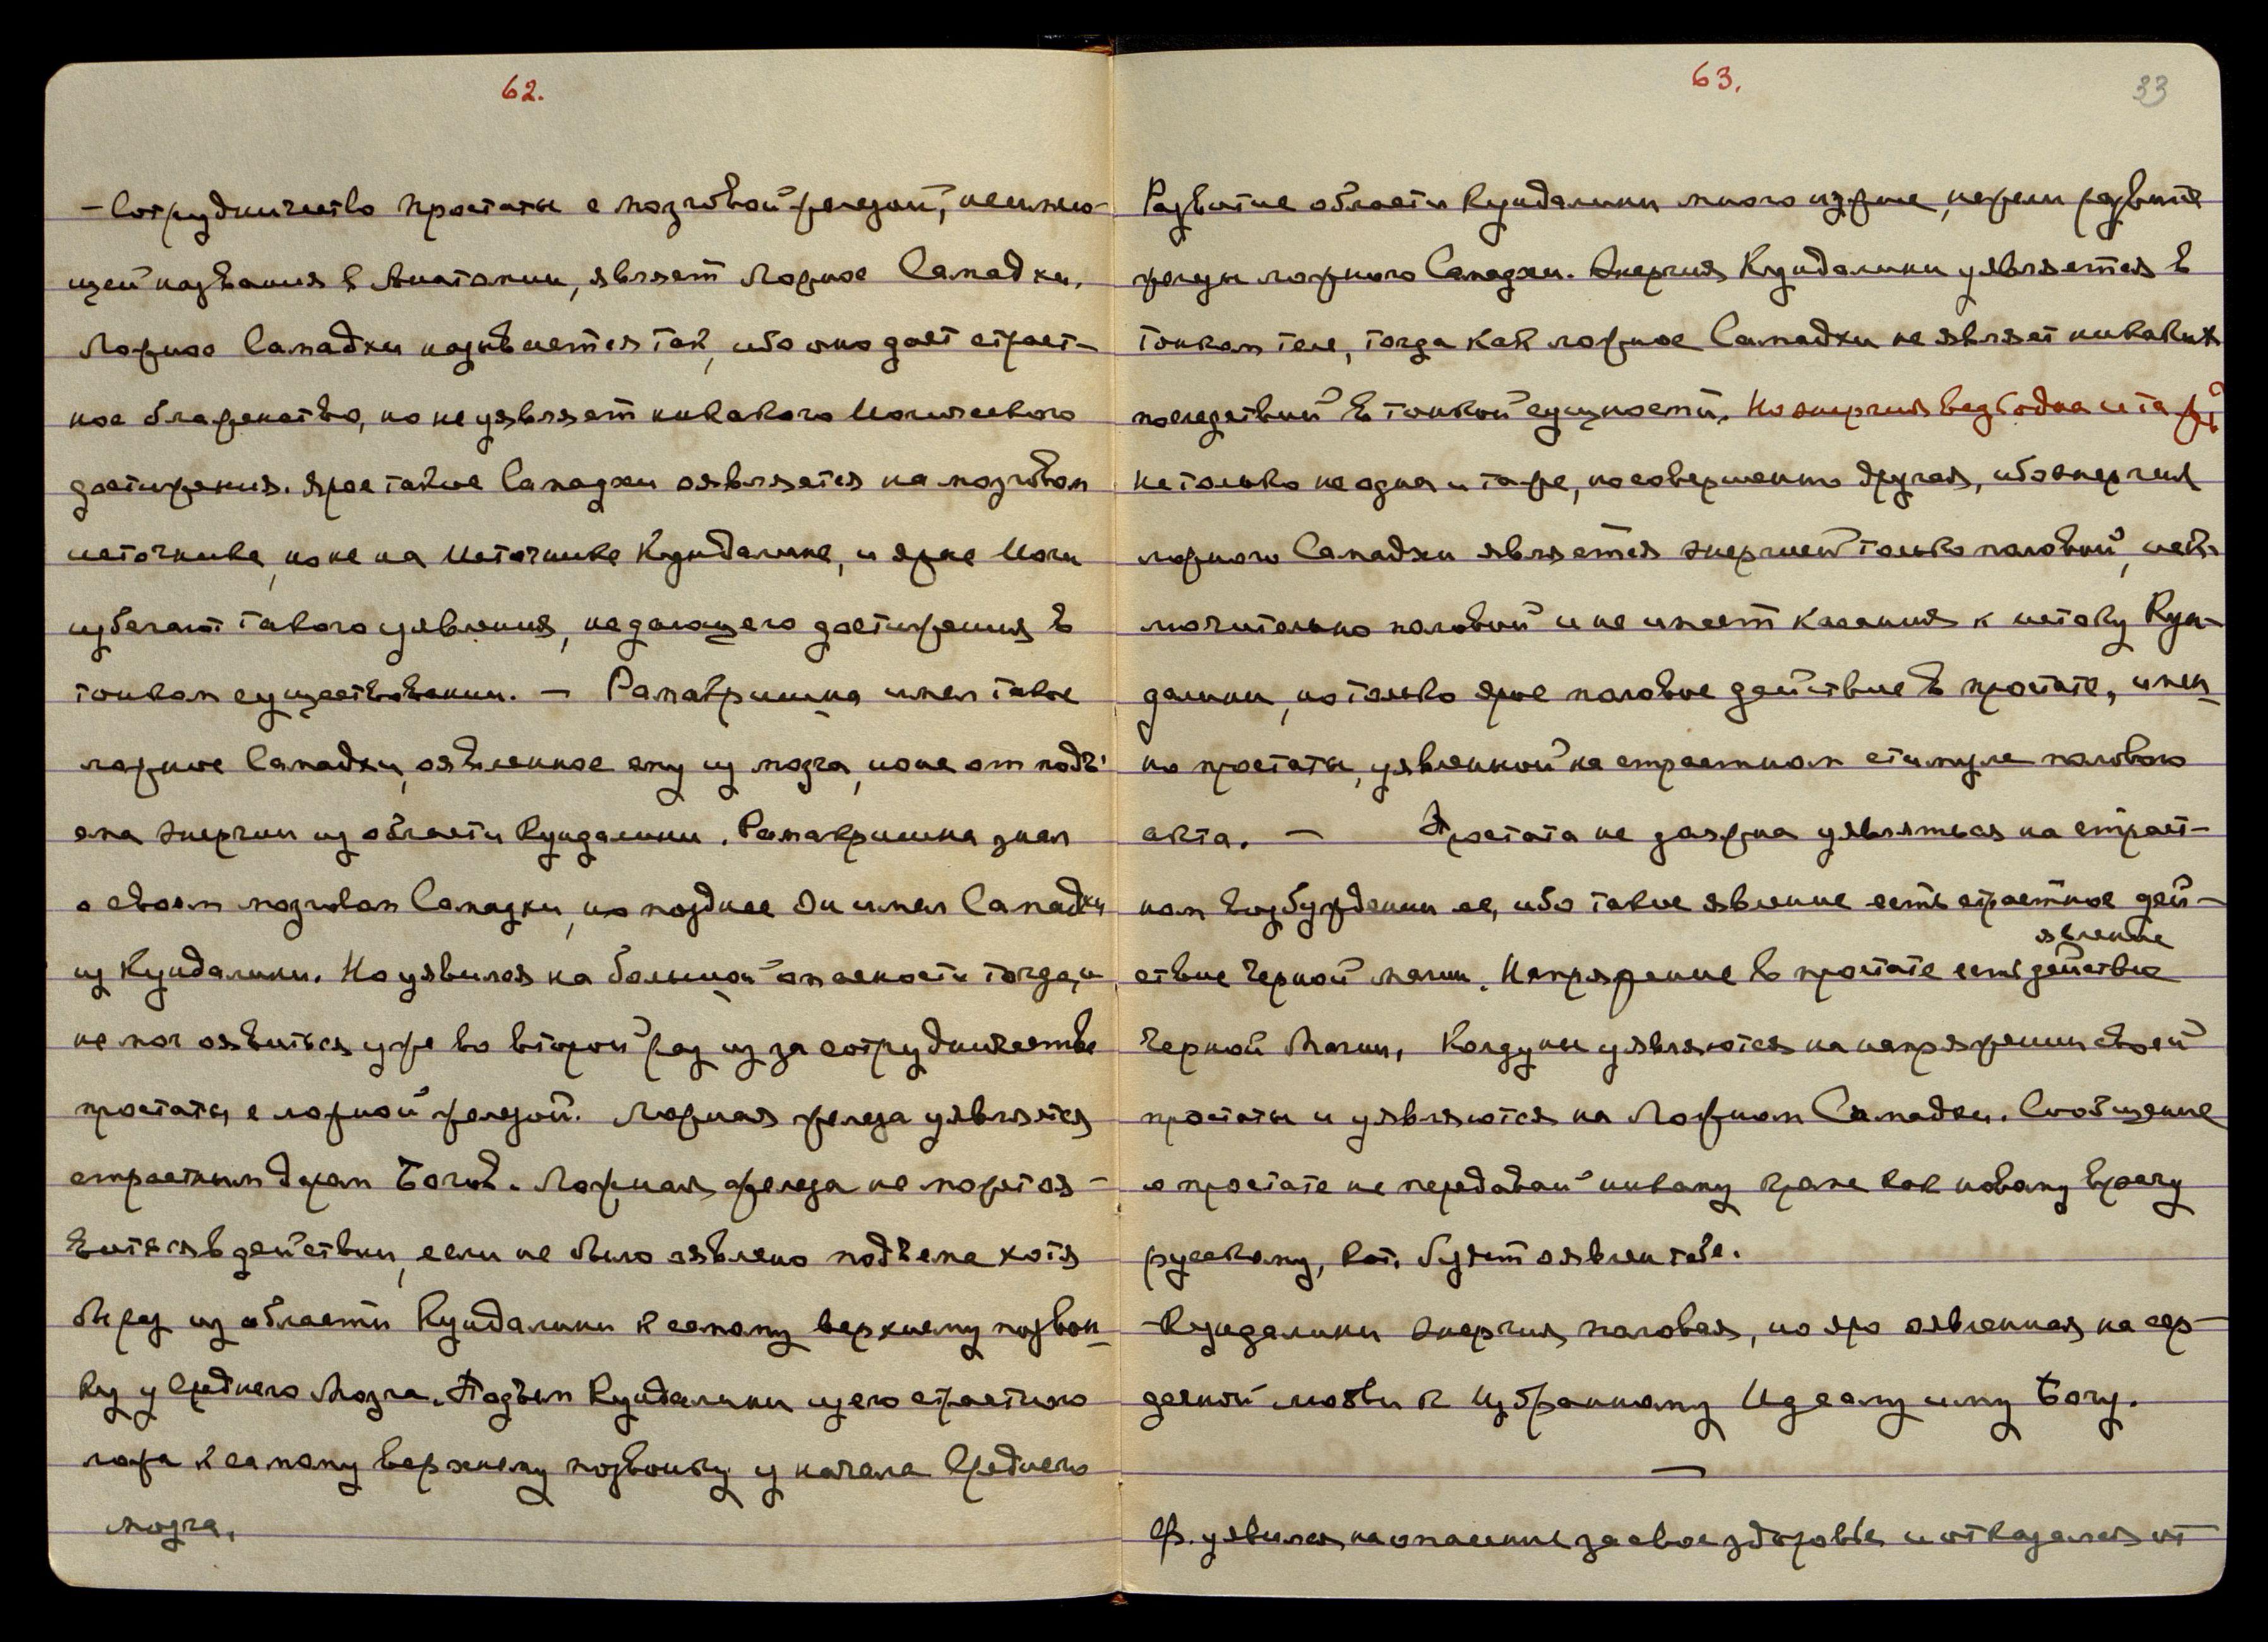 62.
- Сотрудничество простаты с мозговой железой, неимею-
щей названия в Анатомии, являет Ложное Самадхи.
Ложное Самадхи называется так, ибо оно дает страст-
ное блаженство, но не уявляет никакого Иогического
достижения. Ярое такое Самадхи оявляется на мозговом
источнике, но не на Источнике Кундалини, и ярые Иоги
избегают такого уявления, недающего достижения в
тонком существовании. — Рамакришна имел такое
ложное Самадхи, оявленное ему из мозга, но не от подъ-
ема энергии из области Кундалини. Рамакришна знал
о своем мозговом Самадхи, но позднее Он имел Самадхи
из Кундалини. Но уявился на большой опасности тогда, и
не мог оявиться уже во второй раз из за сотрудничества
простаты с ложной железой. Ложная железа уявляется
страстным даром Богов. Ложная железа не может оя-
виться в действии, если не было оявлено подъема хотя
бы раз из области Кундалини к самому верхнему позвон-
ку у Среднего Мозга. Подъем Кундалини из его страстного
ложа к самому верхнему позвонку у начала Среднего
мозга.
63.
33
Развитие области Кундалини много нужнее, нежели развитие
железы ложного Самадхи. Энергия Кундалини уявляется в
тонком теле, тогда как ложное Самадхи не являет никаких
последствий в тонкой сущности. Но энергия везде одна и та же?
Не только не одна и та же, но совершенно другая, ибо энергия
ложного Самадхи является энергией только половой, иск-
лючительно половой и не имеет касания к истоку Кун-
далини, но только ярое половое действие в простате, имен-
но простаты, уявленной на страстном стимуле полового
акта. — Простата не должна уявляться на страст-
ном возбуждении ее, ибо такое явление есть страстное дей-
явление
ствие Черной магии. Напряжение в простате есть действие
Черной Магии. Колдуны уявляются на напряжении своей
простаты и уявляются на Ложном Самадхи. Сообщение
о простате не передавай никому кроме как новому врачу
русскому, кот. будет оявлен тебе.
- Кундалини энергия половая, но яро оявленная на сер-
дечной любви к Избранному Идеалу или Богу.
—
Ф. уявился на опасение за свое здоровье и отказался от